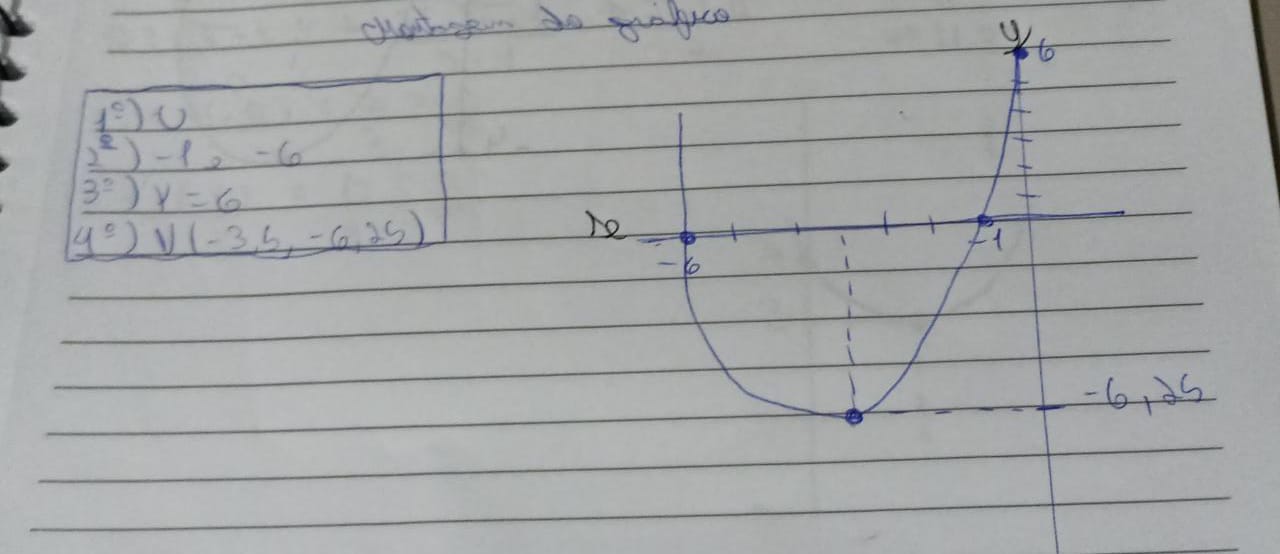 Montagem do gráfico
1º) U
2º) -1, -6
3º) Y = 6
4º) V(-3,5, -6,25)
y
6
-6
-1
-6,25